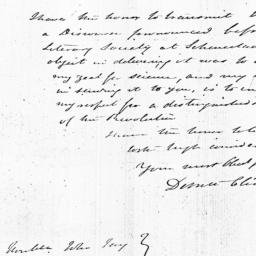 I have the honor to transmit
a Discourse pronounced before
Literary Society at Schenectad
object in delivering it was to
my zeal for science, and my
in sending it to you, is to
my respect for a distinguished
of the Revolution
I have the honor to be
with high consid
Your most Obed
Dewitt Clin
Honble John Jay